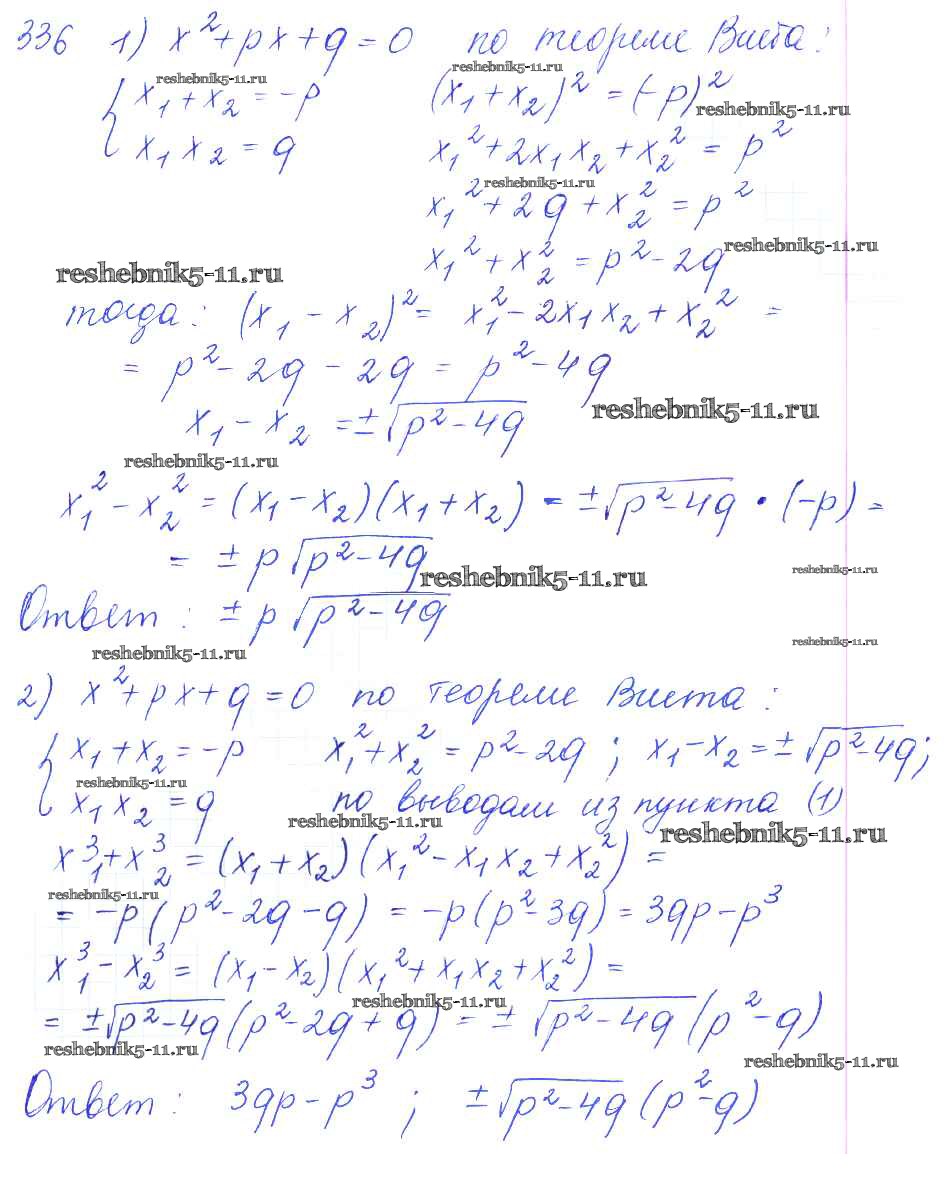 336 1) x²+px+q=0 по теореме Виета:
reshebnik5-11.ru reshebnik5-11.ru
{ x₁+x₂=-p (x₁+x₂)²=(-p)² reshebnik5-11.ru
x₁x₂=q x₁²+2x₁x₂+x₂²=p²
reshebnik5-11.ru
x₁²+2q+x₂²=p²
x₁²+x₂²=p²-2q reshebnik5-11.ru
reshebnik5-11.ru
тогда: (x₁-x₂)²= x₁²-2x₁x₂+x₂² =
= p²-2q-2q=p²-4q
reshebnik5-11.ru
x₁-x₂=±√(p²-4q)
reshebnik5-11.ru
x₁²-x₂²=(x₁-x₂)(x₁+x₂)=±√(p²-4q)·(-p)=
= ±p√(p²-4q)
reshebnik5-11.ru reshebnik5-11.ru
Ответ: ±p√(p²-4q)
reshebnik5-11.ru reshebnik5-11.ru
2) x²+px+q=0 по теореме Виета:
{ x₁+x₂=-p x₁²+x₂²=p²-2q; x₁-x₂=±√(p²-4q);
reshebnik5-11.ru
x₁x₂=q по выводам из пункта (1)
reshebnik5-11.ru reshebnik5-11.ru
x₁³+x₂³=(x₁+x₂)(x₁²-x₁x₂+x₂²)=
reshebnik5-11.ru
= -p(p²-2q-q)=-p(p²-3q)=3qp-p³
x₁³-x₂³=(x₁-x₂)(x₁²+x₁x₂+x₂²)=
reshebnik5-11.ru
= ±√(p²-4q)(p²-2q+q)=±√(p²-4q)(p²-q)
reshebnik5-11.ru reshebnik5-11.ru
Ответ: 3qp-p³; ±√(p²-4q)(p²-q)